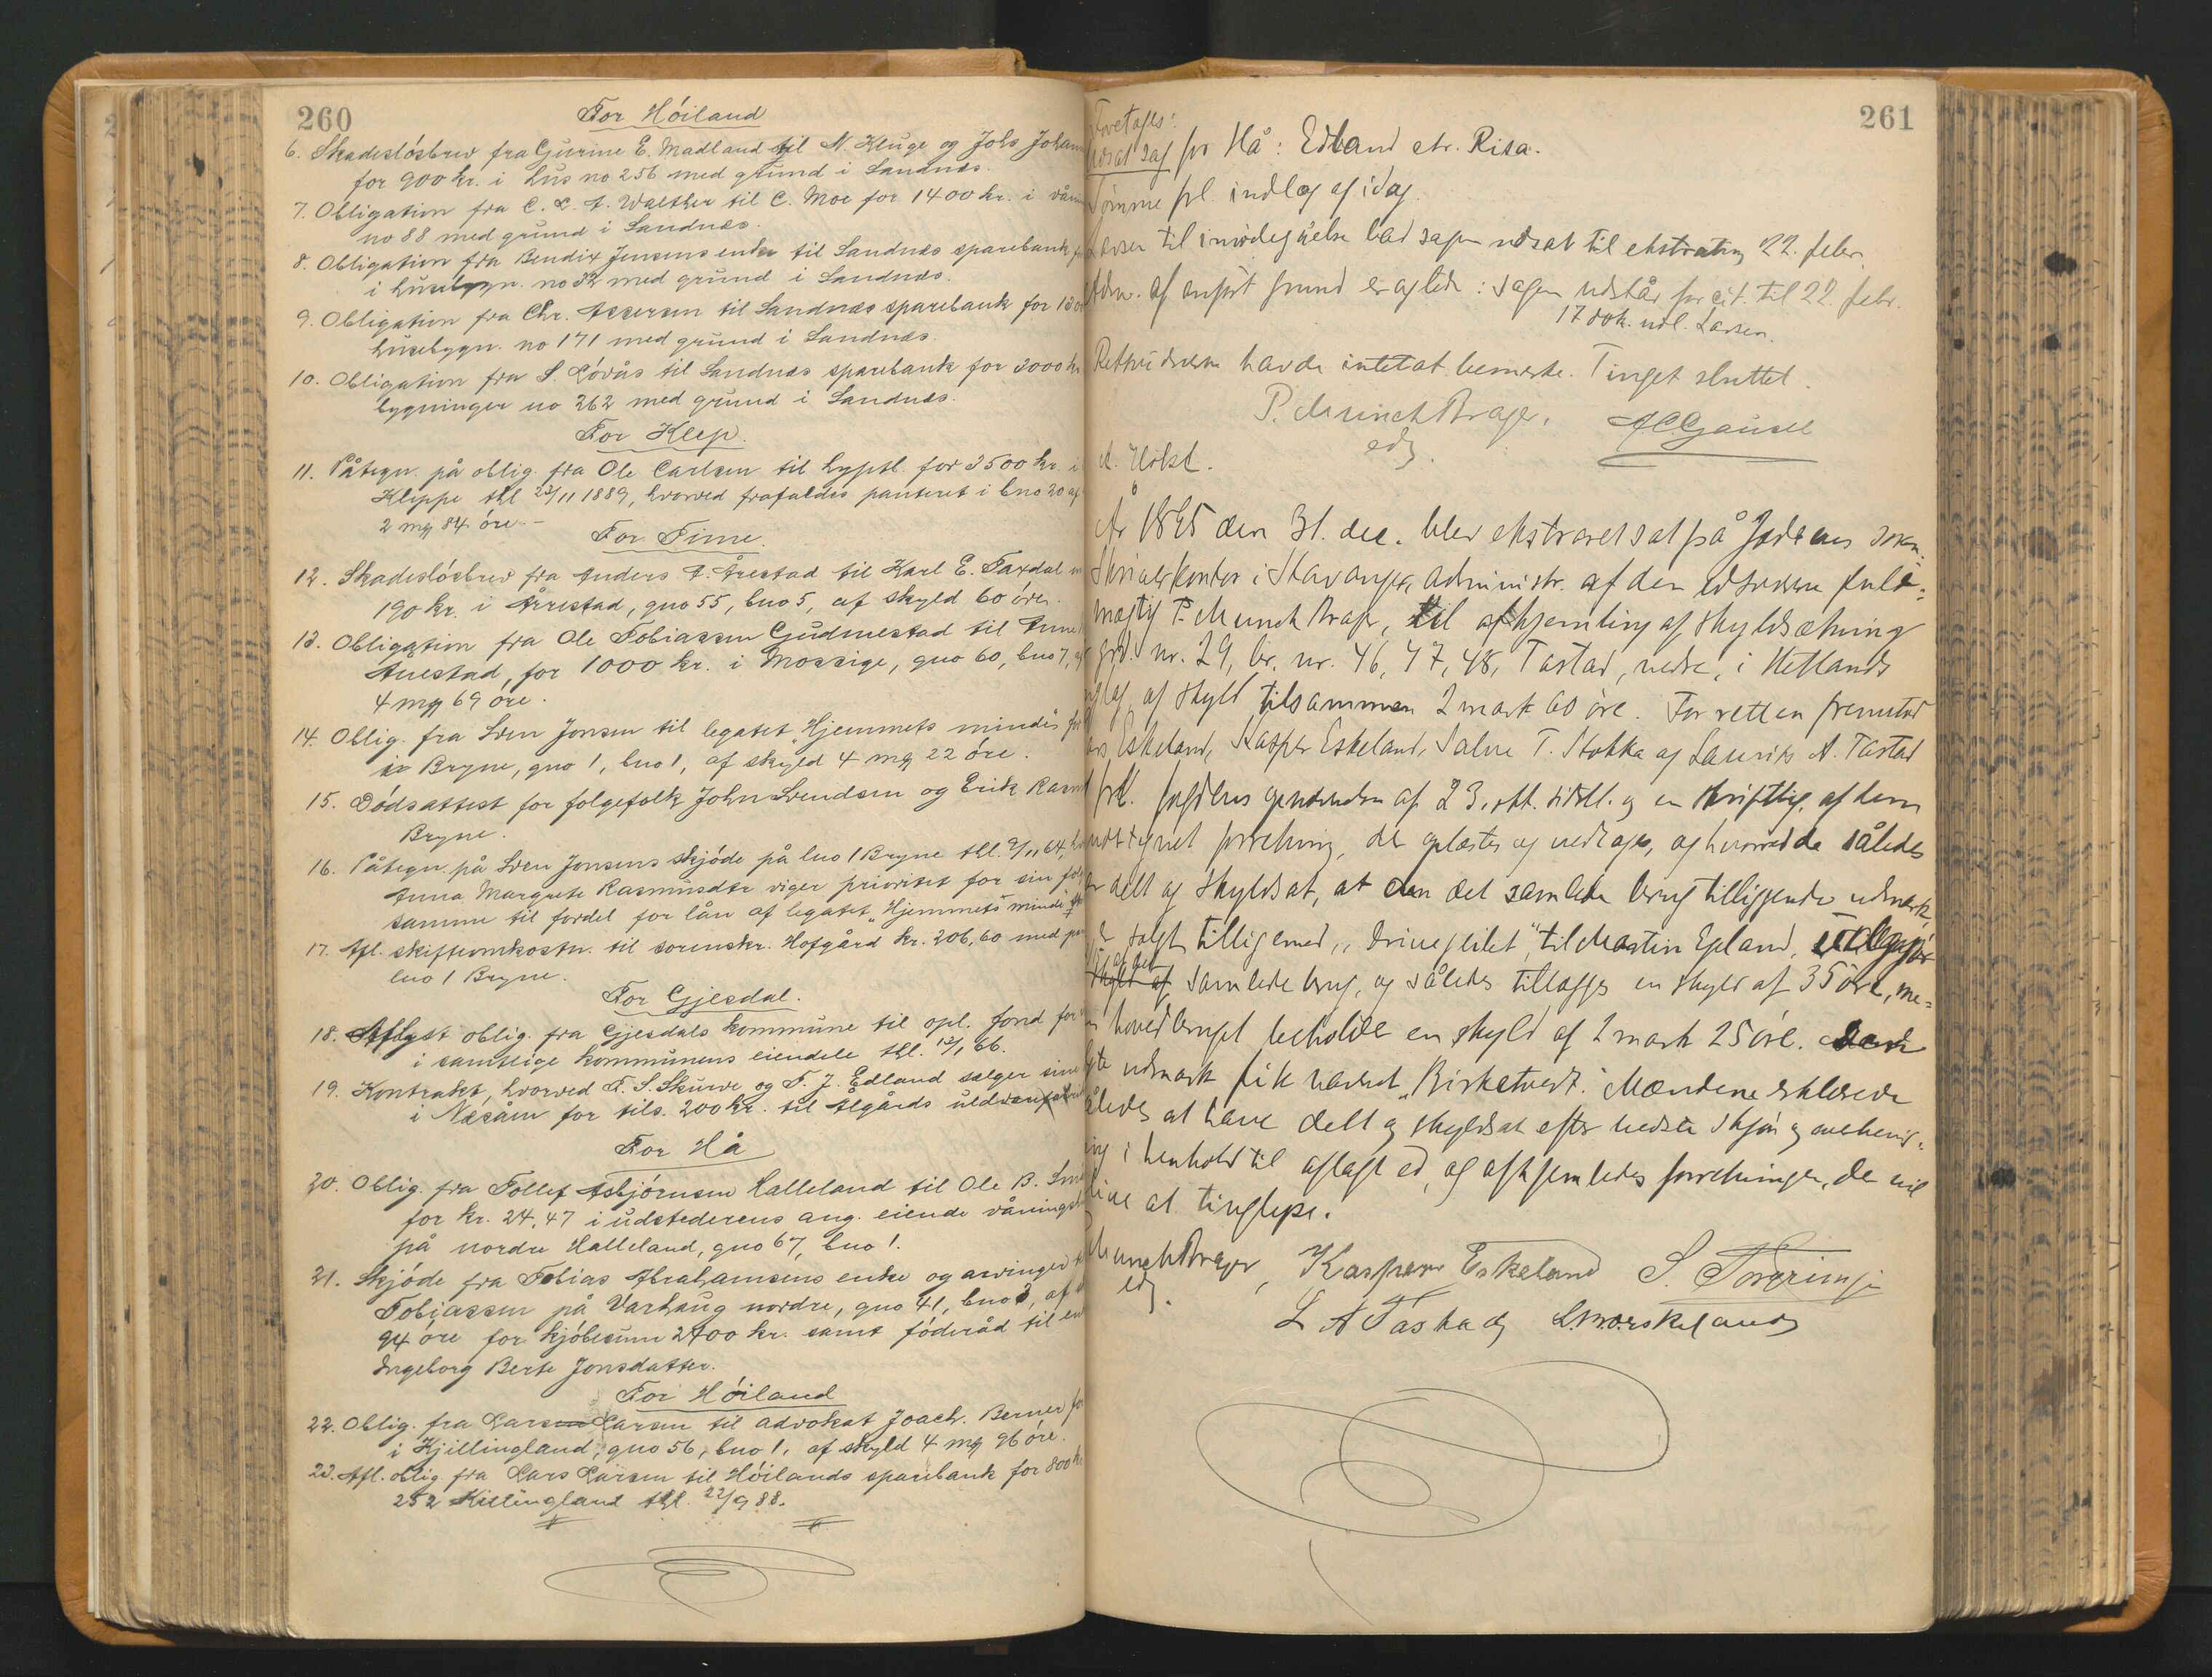 260
For Höiland
6. Skadeslösbrev fra Gurine E. Madland til N. Kluge og Johs Johan
for 900 kr. i hus no 256 med grund i Sandnæs.
7. Obligation fra C. L. A. Walther til C. Moe for 1400 kr. i
no 88 med grund i Sandnæs.
8. Obligation fra Bendix Jensens enke til Sandnæs sparebank
i husebygn. no 32 med grund i Sandnæs.
9. Obligation fra Chr. Assersen til Sandnæs sparebank for
husebygn. no 171 med grund i Sandnæs.
10. Obligation fra S. Lövås til Sandnæs sparebank for 3000 k
bygninger no 262 med grund i Sandnæs.
For Klep.
11. Påtegn. på oblig. fra Ole Carlsen til hyptb. for 3500 kr. i
Kleppe thl 23/11 1889, hvorved frafaldes panteret i bno 20 af
2 mq 84 öre. –
For Time.
12. Skadeslösbrev fra Anders A. Årestad til Karl E. Taxdal
190 kr. i Årrestad, gno 55, bno 5, af skyld 60 öre.
13. Obligation fra Ole Tobiassen Gudmestad til
Auestad, for 1000 kr. i Mossige, gno 60, bno 7,
4 mq 69 öre.
14. Oblig. fra Sven Jonsen til legatet "Hjemmets minde"
i Bryne, gno 1, bno 1, af skyld 4 mq 22 öre.
15. Dödsattest for folgefolk John Svendsen og Erik Rasm
Bryne.
16. Påtegn. på Sven Jonsens skjöde på bno 1 Bryne thl. 9/11 64,
Anna Margrete Rasmusdtr viger prioritet for sin
samme til fordel for lån af legatet "Hjemmets minde"
17. Afl. skifteomkostn. til sorenskr. Hofgård kr. 206,60 med
bno 1 Bryne.
For Gjesdal.
18. Aflyst oblig. fra Gjesdals kommune til opl. fond for
i samtlige kommunens eiendele thl. 13/1 66.
19. Kontrakt, hvorved T. S. Skurve og T. J. Edland sælger sine
i Næsåen for tils. 200 kr. til Ålgårds
For Hå
20. Oblig. fra Tollef Asbjörnsen Halleland til Ole B.
for kr. 24,47 i udstederens ang. eiende våningsh
på nordre Halleland, gno 67, bno 1.
21. Skjöde fra Tobias Abrahamsens enke og arvinger
Tobiassen på Varhaug nordre, gno 41, bno 3, af
94 öre for kjöbesum 2400 kr. samt föderåd til en
Ingeborg Berte Jonsdatter.
For Höiland
22. Oblig. fra Lars Larsen til advokat Joach. Berner for
i Kjillingland, gno 56, bno 1, af skyld 4 mq 96 öre.
23. Afl. oblig. fra Lars Larsen til Höilands sparebank for 800 k
252 Killingland thl. 22/9 88.
261
Foretages:
udsat sag for Hå: Edland ctr. Risa.
Tömme frl. indlæg af idag.
Larsen til imödegåelse bad sagen udsat til ekstrating 22. febr.
Adm. af anfört grund eragtede: sagen udstår for cit. til 22. febr.
17 dok. udl. Larsen.
Retsvidnerne havde intet at bemerke. Tinget sluttet.
P. Munch Brager. A C Gausel
edg.
År 1895 den 31. dec. blev ekstraret sat på Jæderens soren-
skriverkontor i Stavanger, administr. af den edsvorne fuld-
mægtig P. Munch Brager, til afhjemling af skyldsætning
grd. nr. 29, br. nr. 46, 47, 48, Tastad, nedre, i Hetlands
af skyld tilsammen 2 mark 60 öre. For retten fremstod
Eskeland, Kasper Eskeland, Salve T. Stokka og Laurits A. Tastad
frl. fogdens af 23. okt. sidstl. og en skriftlig, af dem
undertegnet forretning, der oplæstes og vedtages, og hvorved de således
delt og skyldsat, at den det samlede brug tilliggende udmark
er solgt tilligemed til Martin Egland,
af det samlede brug, og således tillægges en skyld af 35 öre, me-
hovedbruget beholder en skyld af 2 mark 25 öre.
udmark fik navnet "Birketvedt". Mændene erklærede
således at have delt og skyldsat efter bedste skjön og overbevis-
ning i henhold til aflagt ed, og afhjemledes forretningen, der vil
blive at tinglyse.
Munch Brager, Kasper Eskeland S. Torgrimsen
edg.
L A Tastad